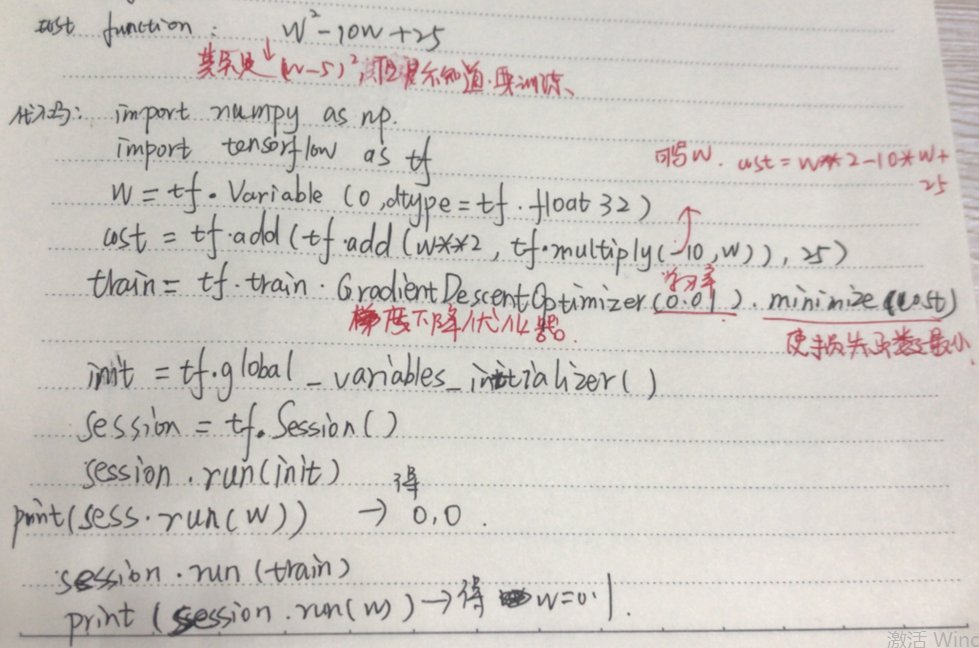 cost function: w²-10w+25
其实是↓(w-5)²,但是不知道.要训练、
代码: import numpy as np.
import tensorflow as tf
可写w. cost = w**2-10*w+
25
w = tf.Variable (0,dtype=tf.float32)
cost = tf.add(tf.add(w**2, tf.multiply(-10,w)),25)
学习率
train= tf.train.GradientDescentOptimizer(0.01).minimize(cost)
梯度下降优化器. 使损失函数最小
init = tf.global_variables_initializer()
session = tf.Session()
session.run(init) 得
print(sess.run(w)) → 0.0.
session.run(train)
print (session.run(w) → 得 w=0.1.
激活 Winc